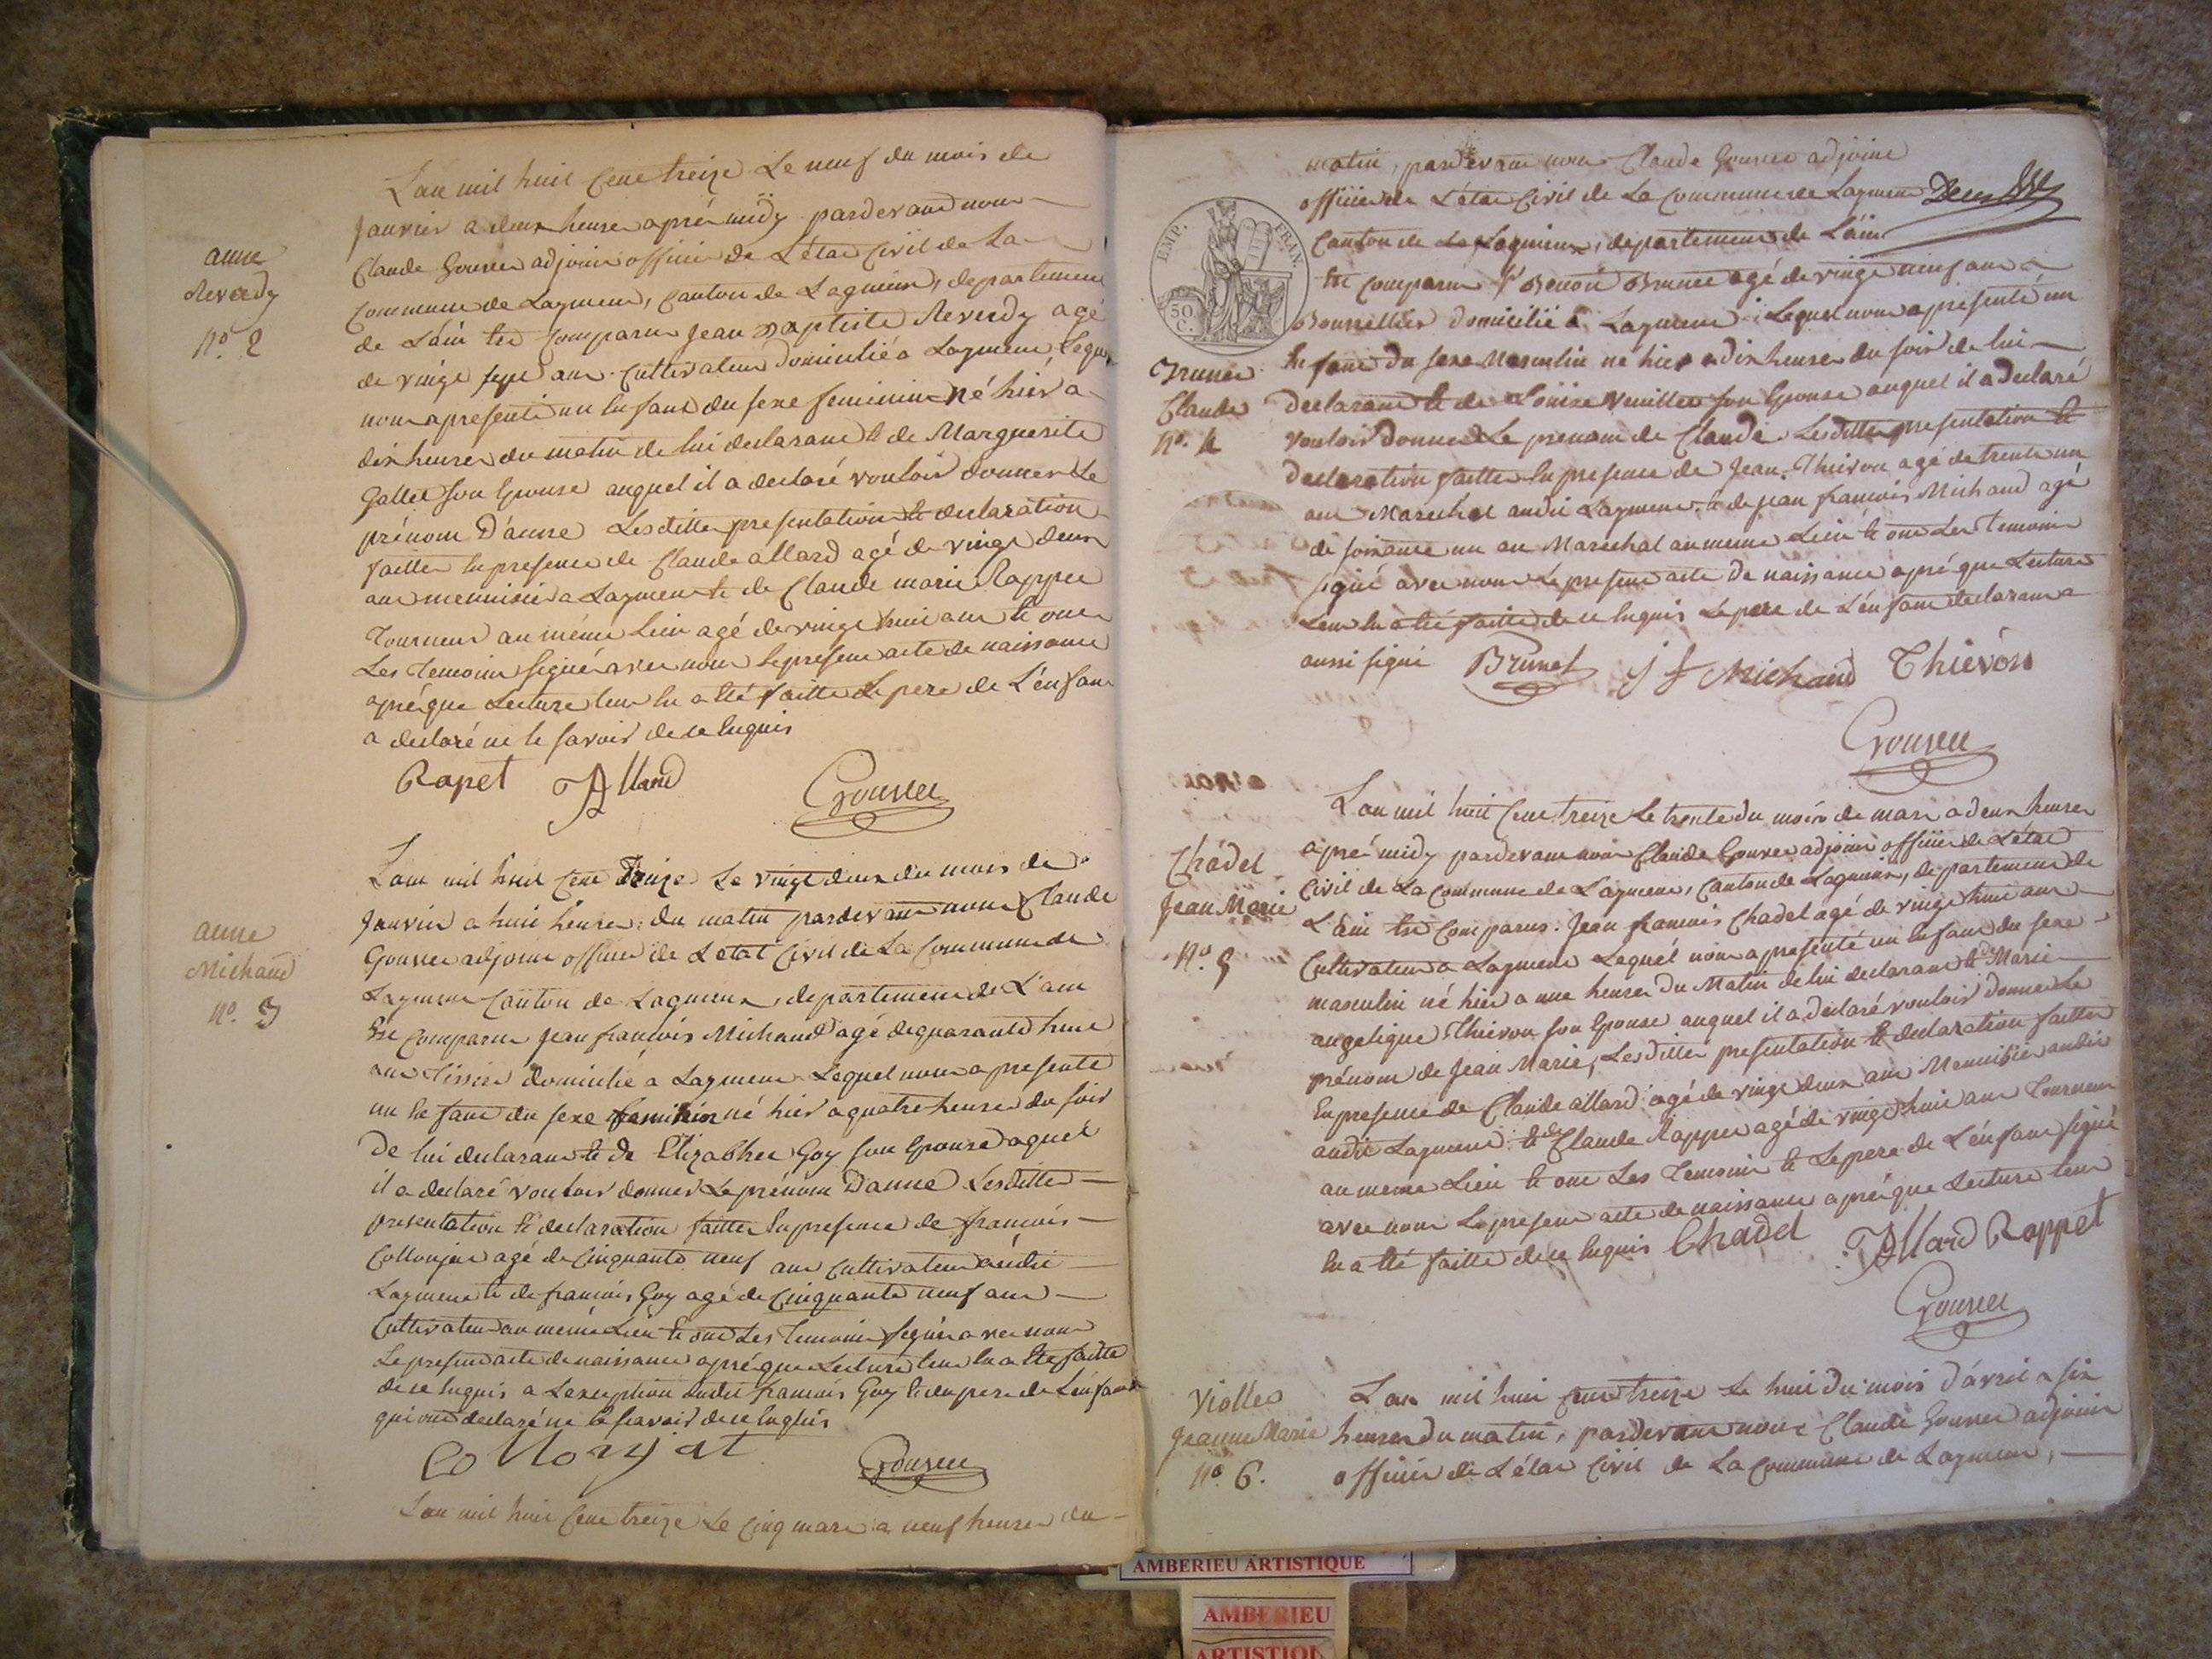 anne
Reverdy
N.º 2
L'an mil huit Cent treize Le neuf du mois de
Janvier a deux heures aprés midy pardevant nous
Claude Gouvee adjoint officier de L'état Civil de La
Commune de Laymene, Canton de Lagnieux, departement
de L'ain Est Comparu Jean Baptiste Reverdy agé
de vingt sept ans Cultivateur domicilié a Laymene Lequel
nous a presenté un Enfant du sexe feminin né hier a
dix heures du matin de lui declarant Et de Marguerite
Gallet son Epouse auquel il a declaré vouloir donner Le
prénom D'anne Lesdittes presentation Et declaration
faittes En presence de Claude allard agé de vingt deux
ans menuisier a Laymene Et de Claude marie Rappet
Tourneur au même Lieu agé de vingt huit ans Et ont
Les Temoins signé avec nous Le present acte de naissance
aprés que Lecture leur En a Eté faitte Le pere de L'enfant
a declaré ne le savoir de ce Enquis
Rapet Allard
Gouvee
anne
Michaud
N.º 3
L'an mil huit Cent treize Le vingt deux du mois de
Janvier a huit heures du matin pardevant nous Claude
Gouvee adjoint officier de L'etat Civil de La Commune de
Laymene Canton de Lagnieux, departement de L'ain
Est Comparu Jean francois Michaud agé de quarante huit
ans Tissier domicilié a Laymene Lequel nous a presenté
un Enfant du sexe feminin né hier a quatre heures du soir
De lui declarant Et de Elizabhet Goy son Epouse aquel
il a declaré vouloir donner Le prénom D'anne Lesdittes
presentation Et declaration faittes En presence de francois
Collonjat agé de Cinquante neuf ans Cultivateur audit
Laymene Et de francois Goy agé de Cinquante neuf ans
Cultivateur au même Lieu Et ont Les Temoins signé avec nous
Le present acte de naissance aprés que Lecture leur En a Eté faitte
de ce Enquis a L'exception dudit francois Goy Et du pere de L'enfant
qui ont declaré ne Le scavoir de ce Enquis
Collonjat
Gouvee
L'an mil huit Cent treize Le Cinq mars a neuf heures du
matin, pardevant nous Claude Gouvee adjoint
officier de L'état Civil de La Commune de Laymene
EMP. FRAN.
50 C.
Canton de Lagnieux, departement de L'ain
Est Comparu Benoit Brunet agé de vingt neuf ans
Bourrellier domicilié a Laymene Lequel nous a presenté un
Brunet
Claude
N.º 4
Enfant du sexe Masculin né hier a dix heures du soir de lui
Declarant Et de Louise Veuillet son Epouse auquel il a Declaré
vouloir donner Le prenom de Claude Lesdittes presentation Et
Declaration faittes En presence de Jean Thievon agé de trente un
ans Marechal audit Laymene Et de jean francois Michaud agé
de soixante un an Marechal au meme Lieu Et ont Les Temoins
signé avec nous Le present acte De naissance aprés que Lecture
Leur En a Eté faitte de ce Enquis Le pere de L'enfant declarant a
aussi signé Brunet J f Michaud Thievon
Gouvee
Chadel
Jean Marie
N.º 5
L'an mil huit Cent treize Le trente du mois de mars a deux heures
aprés midy pardevant nous Claude Gouvee adjoint officier de L'état
Civil de La Commune de Laymene, Canton de Lagnieux, departement de
L'ain Est Comparus Jean francois Chadel agé de vingt huit ans
Cultivateur a Laymene Lequel nous a presenté un Enfant du sexe
masculin né hier a une heures Du Matin de lui declarant Et de Marie
angelique Thievon son Epouse auquel il a declaré vouloir donner Le
prénom de Jean Marie, Lesdittes presentation Et declaration faittes
En presence de Claude allard agé de vingt deux ans Menuisier audit
audit Laymene Et de Claude Rappet agé de vingt huit ans Tourneur
au meme Lieu Et ont Les Temoins Et Le pere de L'enfant signé
avec nous Le present acte de naissance aprés que Lecture leur
En a Eté faitte de ce Enquis Chadel Allard Rappet
Gouvee
Viollet
Jeanne Marie
N.º 6.
L'an mil huit Cent treize Le huit du mois d'avril a six
heures du matin, pardevant nous Claude Gouvee adjoint
officier de L'état Civil de La Commune de Laymene,
AMBERIEU ARTISTIQUE
AMBERIEU
ARTISTIQU